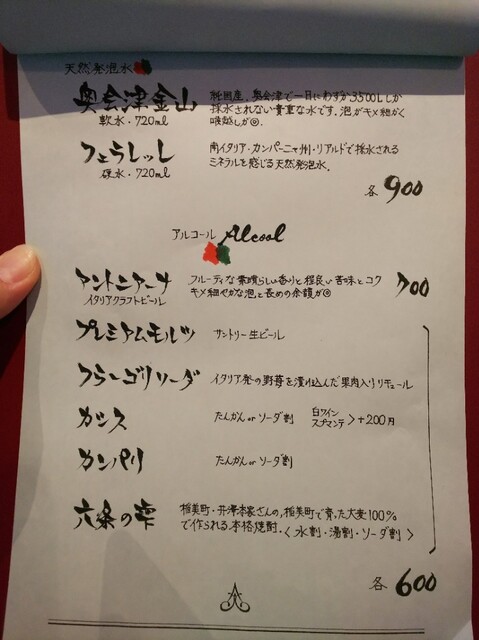 天然発泡水
奥会津金山
軟水・720ml
純国産。奥会津で一日にわずか3500Lしか
採水されない貴重な水です。泡がキメ細かく
喉越しが◎.
フェラレッレ
硬水・720ml
南イタリア・カンパーニャ州・リアルドで採水される
ミネラルを感じる天然発泡水.
各900
アルコール Alcool
アントニアーナ
イタリアクラフトビール
フルーティな素晴らしい香りと程良い苦味とコク
キメ細やかな泡と長めの余韻が◎
700
プレミアムモルツ サントリー生ビール
フラーゴリソーダ イタリア発の野苺を漬け込んだ果肉入りリキュール
カシス たんかん or ソーダ割 白ワイン
スプマンテ >+200円
カンパリ たんかん or ソーダ割
六条の雫
稲美町・井澤本家さんの、稲美町で育った大麦100%
で作られる本格焼酎.<水割・湯割・ソーダ割>
各600